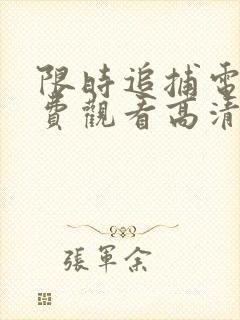 限時追捕電
費觀看高清
張軍余